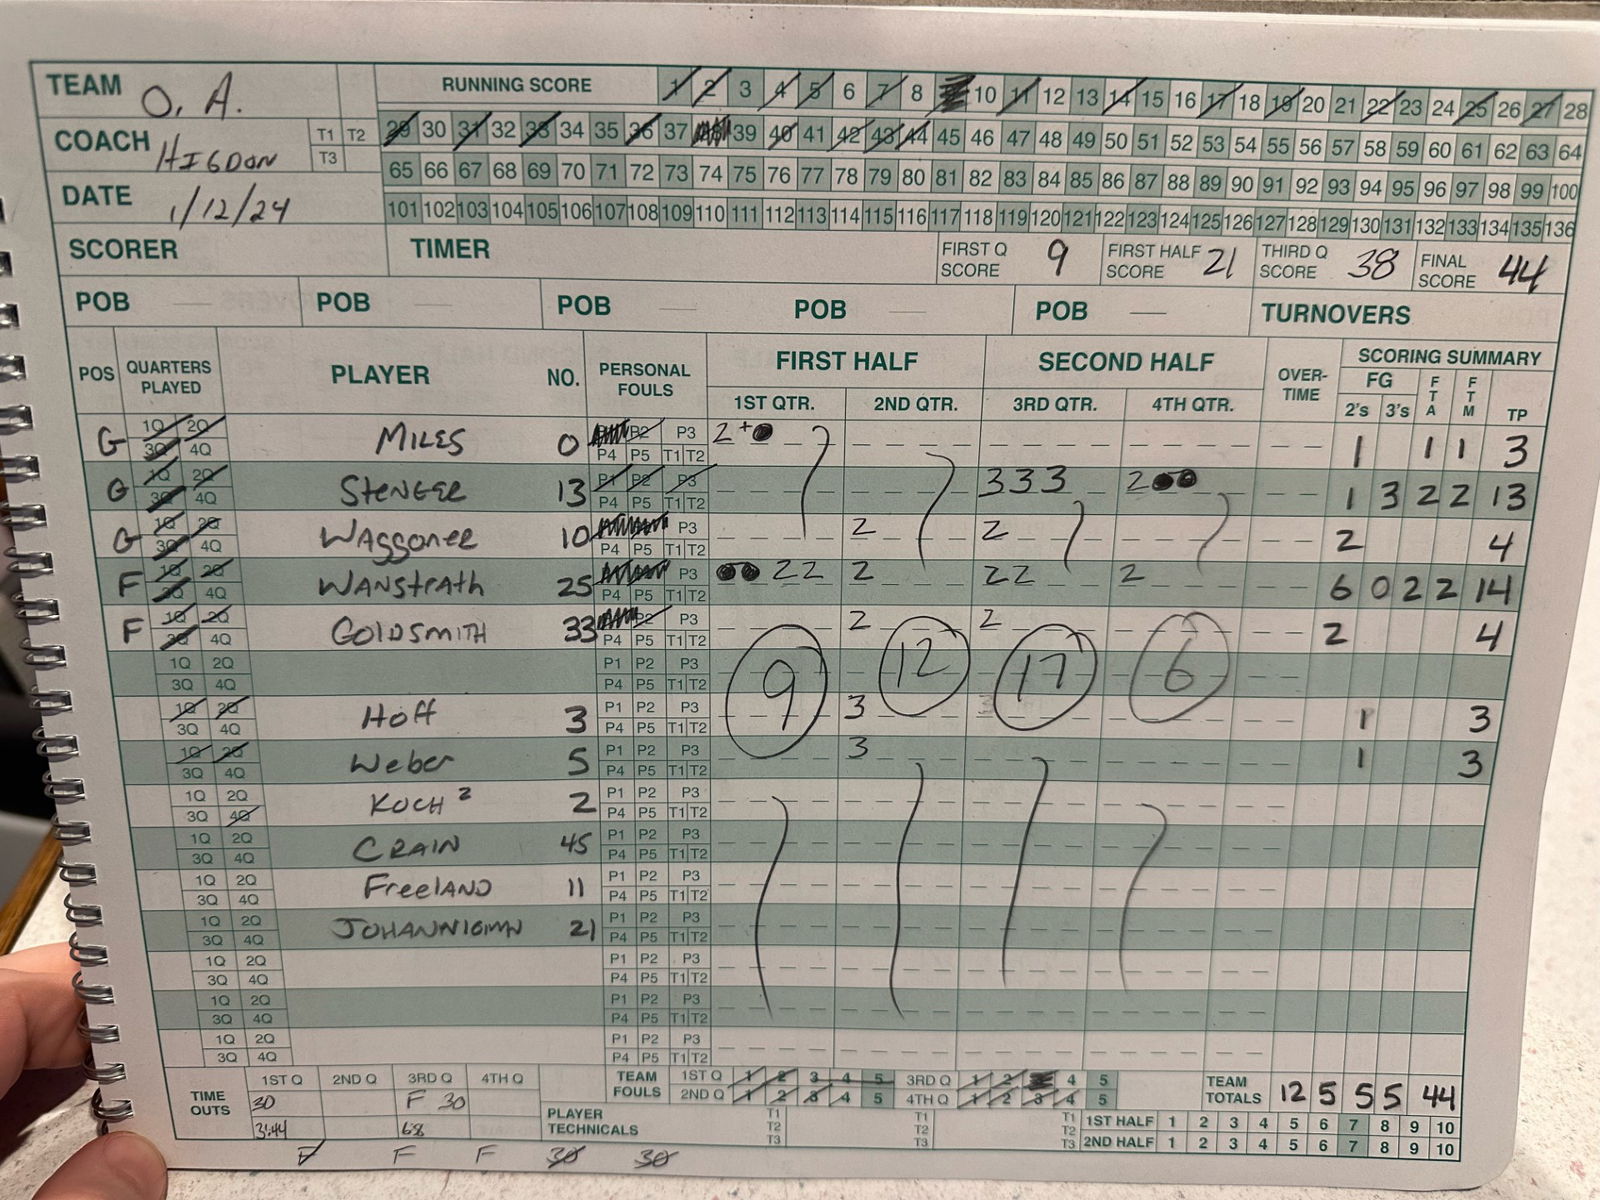 TEAM O. A.
RUNNING SCORE 1 2 3 4 5 6 7 8 10 11 12 13 14 15 16 17 18 19 20 21 22 23 24 25 26 27 28
COACH HIGDON T1 T2 T3
29 30 31 32 33 34 35 36 37 38 39 40 41 42 43 44 45 46 47 48 49 50 51 52 53 54 55 56 57 58 59 60 61 62 63 64
65 66 67 68 69 70 71 72 73 74 75 76 77 78 79 80 81 82 83 84 85 86 87 88 89 90 91 92 93 94 95 96 97 98 99 100
DATE 1/12/24
101 102 103 104 105 106 107 108 109 110 111 112 113 114 115 116 117 118 119 120 121 122 123 124 125 126 127 128 129 130 131 132 133 134 135 136
SCORER TIMER FIRST Q SCORE 9 FIRST HALF SCORE 21 THIRD Q SCORE 38 FINAL SCORE 44
POB — POB — POB — POB — POB — TURNOVERS
POS QUARTERS PLAYED PLAYER NO. PERSONAL FOULS FIRST HALF SECOND HALF OVER-TIME SCORING SUMMARY
1ST QTR. 2ND QTR. 3RD QTR. 4TH QTR. FG 2's 3's FTA FTM TP
G 1Q 2Q 3Q 4Q MILES 0 P2 P3 P4 P5 T1 T2 2+ 1 1 1 3
G 1Q 2Q 3Q 4Q STENGER 13 P1 P2 P3 P4 P5 T1 T2 3 3 3 2 1 3 2 2 13
G 1Q 2Q 3Q 4Q WAGGONER 10 P3 P4 P5 T1 T2 2 2 2 4
F 1Q 2Q 3Q 4Q WANSTRATH 25 P3 P4 P5 T1 T2 2 2 2 2 2 2 6 0 2 2 14
F 1Q 2Q 3Q 4Q GOLDSMITH 33 P2 P3 P4 P5 T1 T2 2 2 2 4
1Q 2Q 3Q 4Q P1 P2 P3 P4 P5 T1 T2 9 12 17 6
1Q 2Q 3Q 4Q HOFF 3 P1 P2 P3 P4 P5 T1 T2 3 1 3
1Q 2Q 3Q 4Q Weber 5 P1 P2 P3 P4 P5 T1 T2 3 1 3
1Q 2Q 3Q 4Q KOCH 2 2 P1 P2 P3 P4 P5 T1 T2
1Q 2Q 3Q 4Q CRAIN 45 P1 P2 P3 P4 P5 T1 T2
1Q 2Q 3Q 4Q FreeLAND 11 P1 P2 P3 P4 P5 T1 T2
1Q 2Q 3Q 4Q 21 P1 P2 P3 P4 P5 T1 T2
1Q 2Q 3Q 4Q P1 P2 P3 P4 P5 T1 T2
1Q 2Q 3Q 4Q P1 P2 P3 P4 P5 T1 T2
1Q 2Q 3Q 4Q P1 P2 P3 P4 P5 T1 T2
TIME OUTS 1ST Q 2ND Q 3RD Q 4TH Q
30 F 30
3:44 68
TEAM FOULS 1ST Q 1 2 3 4 5 3RD Q 1 2 4 5
2ND Q 1 2 3 4 5 4TH Q 1 2 3 4 5
TEAM TOTALS 12 5 5 5 44
PLAYER TECHNICALS T1 T2 T3 T1 T2 T3 T1 T2 T3
1ST HALF 1 2 3 4 5 6 7 8 9 10
2ND HALF 1 2 3 4 5 6 7 8 9 10
F F F 30 30